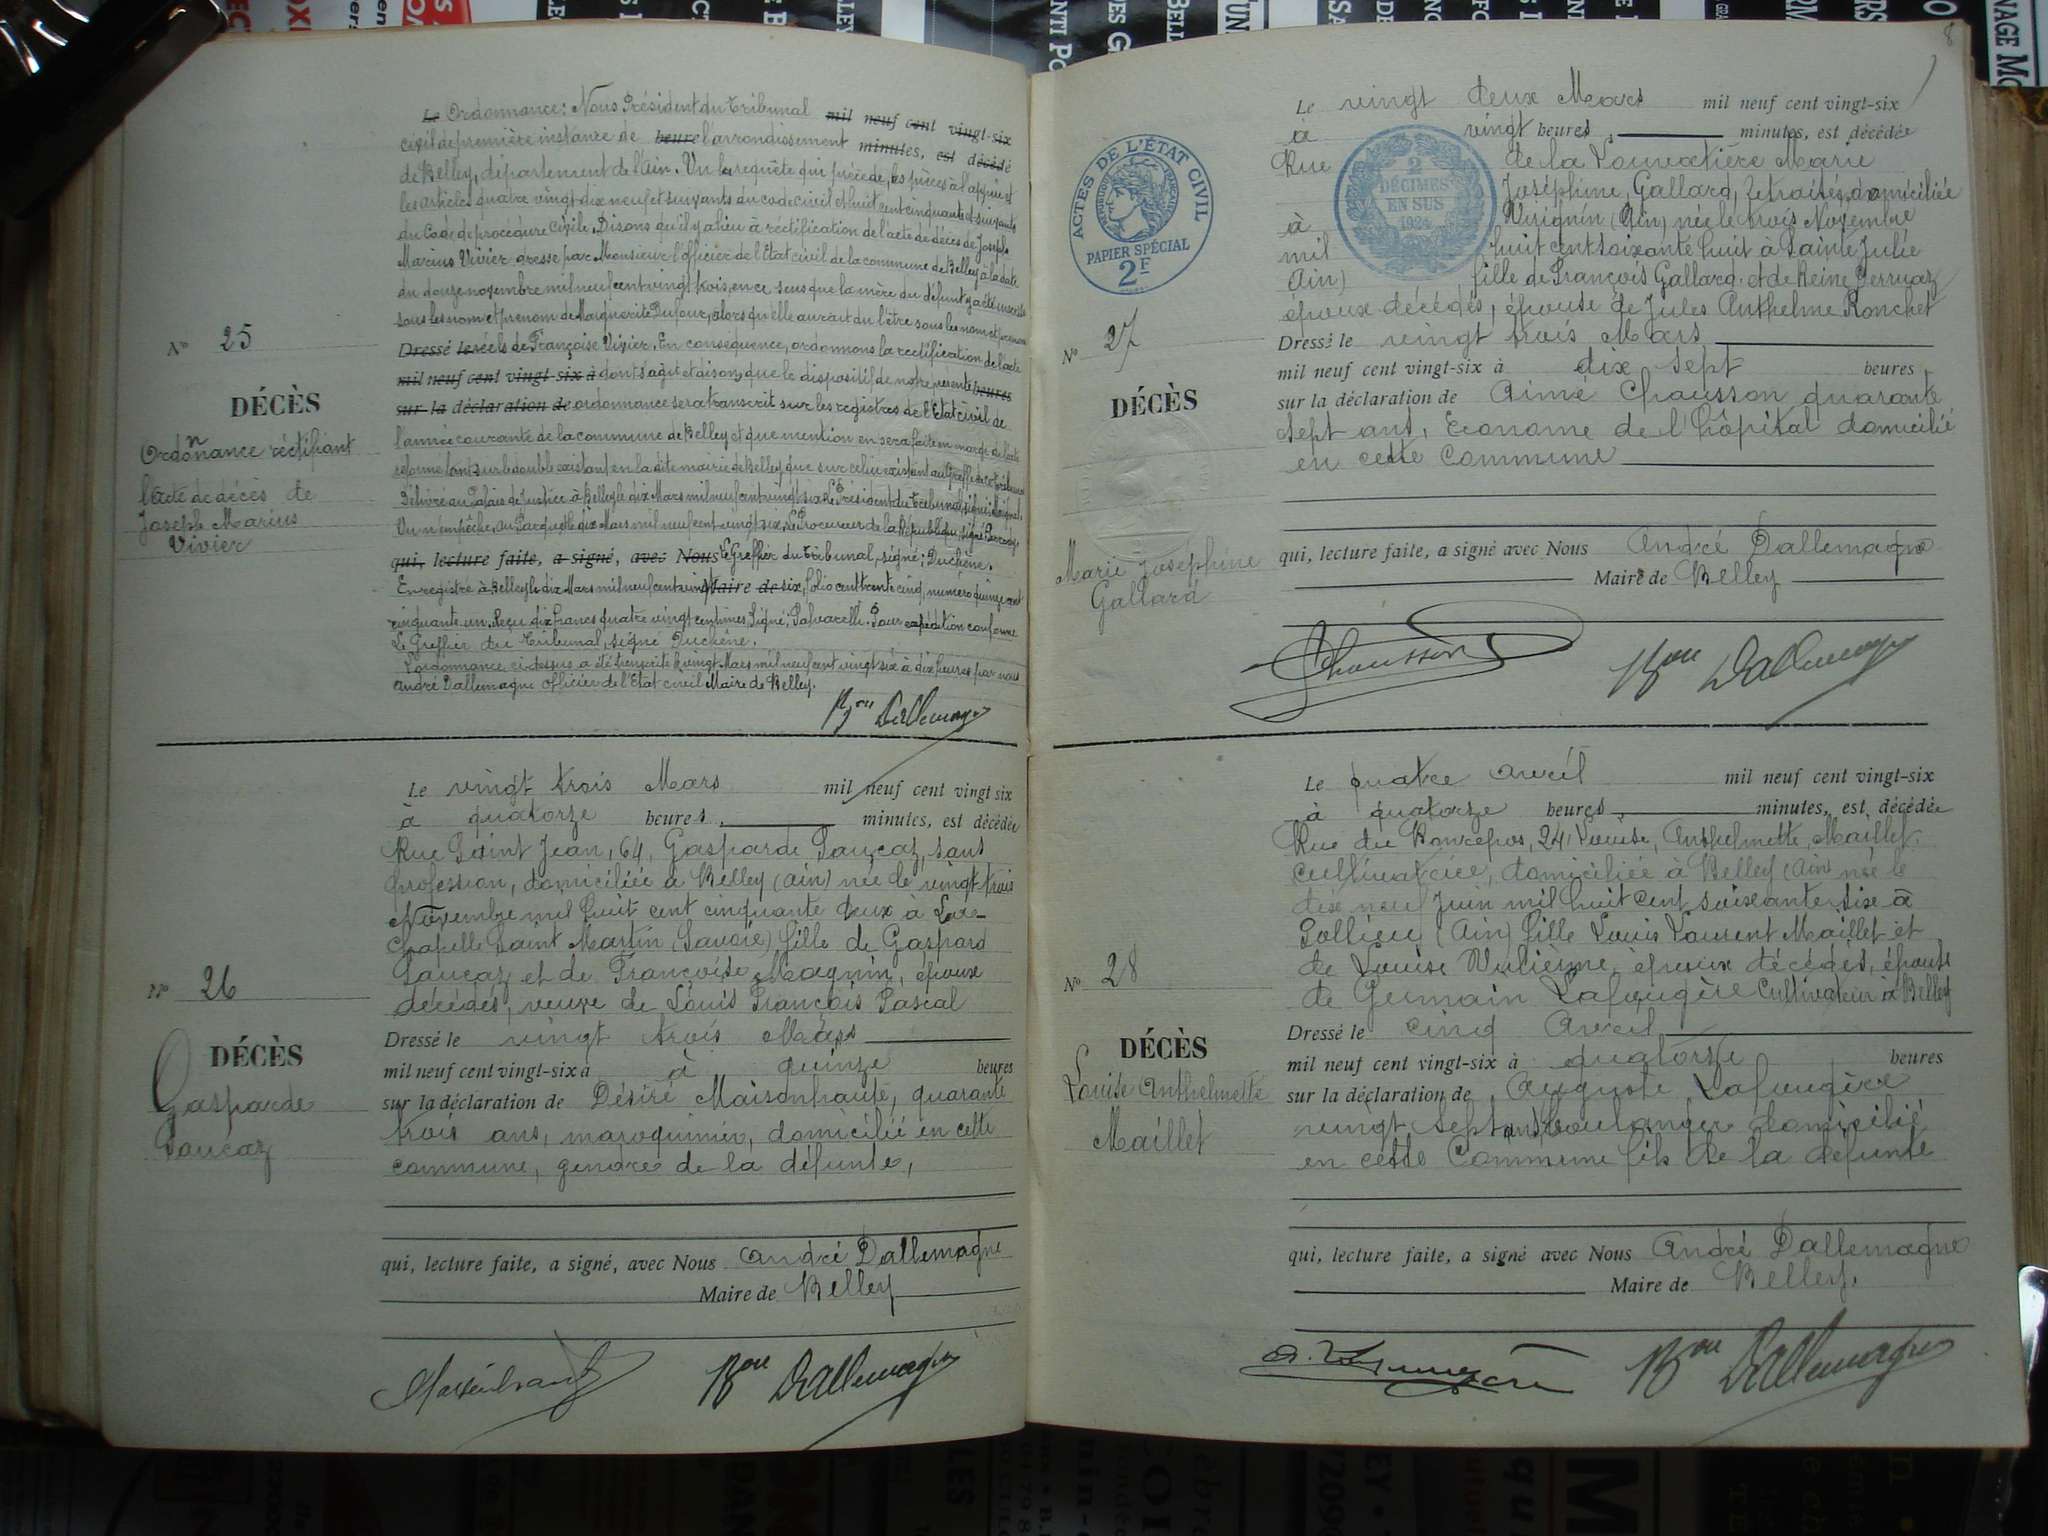 Le Ordonnance: Nous Président du Tribunal mil neuf cent vingt-six
civil de première instance de heure l'arrondissement minutes, est décédé
de Belley, département de l'Ain. Vu la requête qui précède, les pièces à l'appui et
les articles quatre vingt dix neuf et suivants du code civil et huit cent cinquante et suivants
du Code de procédure Civile, Disons qu'il y a lieu à réctification de l'acte de décès de Joseph
Marius Vivier dressé par Monsieur l'officier de l'Etat civil de la commune de Belley à la date
du douze novembre mil neuf cent vingt trois, en ce sens que la mère du défunt y a été inscrite
sous les nom et prénom de Marguerite Dufour, alors qu'elle aurait du l'être sous les nom et prénom
Dressé le réels de Françoise Vivier. En conséquence, ordonnons la rectification de l'acte
mil neuf cent vingt-six à dont s'agit et disons que le dispositif de notre présente heures
sur la déclaration de ordonnance sera transcrit sur les registres de l'Etat civil de
l'année courante de la commune de Belley et que mention en sera faite en marge de l'acte
réformé tant sur le double existant en la dite mairie de Belley que sur celui existant au Greffe de ce tribunal
Délivré au Palais de Justice à Belley le dix Mars mil neuf cent vingt six Le Président du Tribunal, signé:
Vu n'empêche, au Parquet le dix Mars mil neuf cent vingt six, Le Procureur de la République, signé
qui, lecture faite, a signé, avec Nous Le Greffier du Tribunal, signé: Duchêne.
Enregistré à Belley le dix Mars mil neuf cent vingt Maire de six, folio cent trente cinq, numéro quinze cent
cinquante un. Reçu dix francs quatre vingt centimes Signé, Pour expédition conforme
Le Greffier du Tribunal, signé Duchêne.
L'ordonnance ci-dessus a été transcrite le vingt Mars mil neuf cent vingt six à dix heures par nous
André Dallemagne officier de l'Etat civil Maire de Belley.
Bon Dallemagne
N° 25
DÉCÈS
Ordonnance réctifiant
l'acte de décès de
Joseph Marius
Vivier
Le vingt trois Mars mil neuf cent vingt six
à quatorze heures, minutes, est décédée
Rue Saint Jean, 64, Gasparde Paucaz, sans
profession, domiciliée à Belley (ain) née le vingt trois
Novembre mil huit cent cinquante deux à La
Chapelle Saint Martin (Savoie) fille de Gaspard
Paucaz et de Françoise Magnin, époux
décédés, veuve de Louis François Pascal
Dressé le vingt trois Mars
mil neuf cent vingt-six à à quinze heures
sur la déclaration de Désiré Maisonhaute, quarante
trois ans, maroquinier, domicilié en cette
commune, gendre de la défunte,
qui, lecture faite, a signé, avec Nous André Dallemagne
Maire de Belley
N° 26
DÉCÈS
Gasparde
Paucaz
Bon Dallemagne
8
Le vingt deux Mars mil neuf cent vingt-six
à vingt heures, minutes, est décédée
Rue de la Louvatière Marie
Joséphine Gallard, retraitée, domiciliée
à Virignin (Ain) née le trois Novembre
mil huit cent soixante huit à Sainte Julie
Ain) fille de François Gallard et de Reine Perruaz
époux décédés, épouse de Jules Anthelme Ronchet
Dressé le vingt trois Mars
mil neuf cent vingt-six à dix sept heures
sur la déclaration de Aimé Chausson quarante
sept ans, Econome de l'hôpital domicilié
en cette Commune
qui, lecture faite, a signé avec Nous André Dallemagne
Maire de Belley
ACTES DE L'ÉTAT CIVIL
RÉPUBLIQUE FRANÇAISE
PAPIER SPÉCIAL
2F
2
DÉCIMES
EN SUS
1924
N° 27
DÉCÈS
Marie Joséphine
Gallard
Chausson
Bon Dallemagne
Le quatre avril mil neuf cent vingt-six
à quatorze heures, minutes, est décédée
Rue du Boncepos, 24, Louise, Anthelmette, Maillet,
cultivatrice, domiciliée à Belley (Ain) née le
dix neuf Juin mil huit cent soixante six à
Pollieu (Ain) fille Louis Laurent Maillet et
de Louise époux décédés, épouse
de Germain Lafougère Cultivateur à Belley
Dressé le cinq Avril
mil neuf cent vingt-six à quatorze heures
sur la déclaration de Auguste Lafougère
vingt sept ans, boulanger domicilié
en cette Commune fils de la défunte
qui, lecture faite, a signé avec Nous André Dallemagne
Maire de Belley.
N° 28
DÉCÈS
Louise Anthelmette
Maillet
Bon Dallemagne